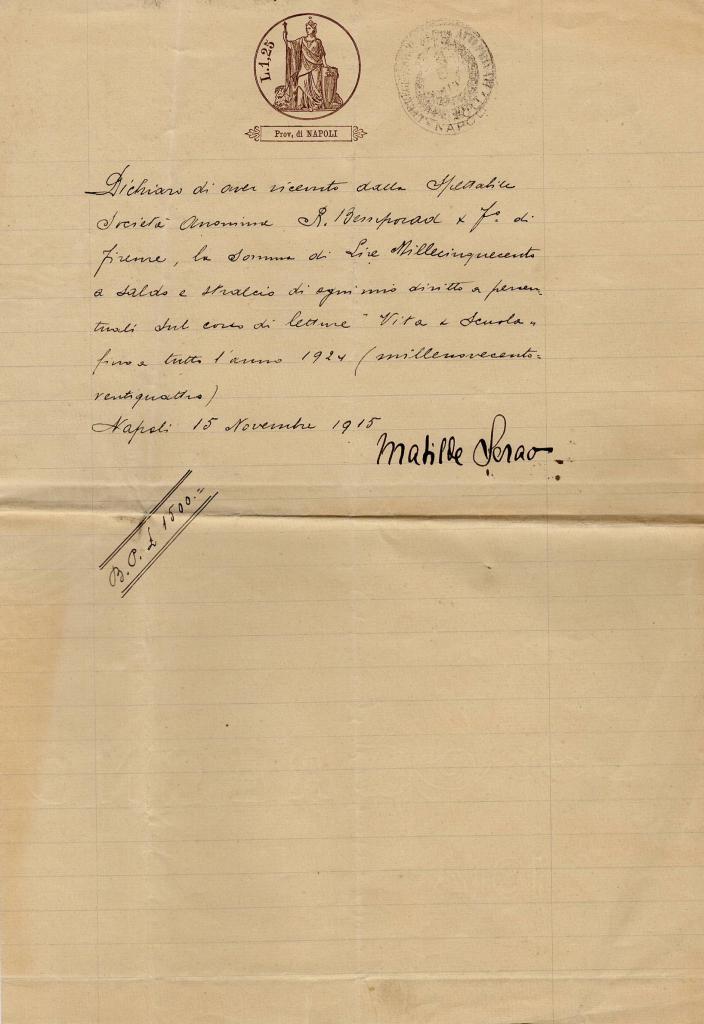 L.1,25
Prov. di NAPOLI
NAPOLI
Dichiaro di aver ricevuto dalla Spettabile
Società Anonima R. Bemporad & Fo. di
Firenze, la somma di Lire Millecinquecento
a saldo e stralcio di ogni mio diritto a percen-
tuali sul corso di letture "Vita e Scuola"
fino a tutto l'anno 1924 (millenovecento-
ventiquattro)
Napoli 15 Novembre 1915
Matilde Serao
B.P. L 1500.=